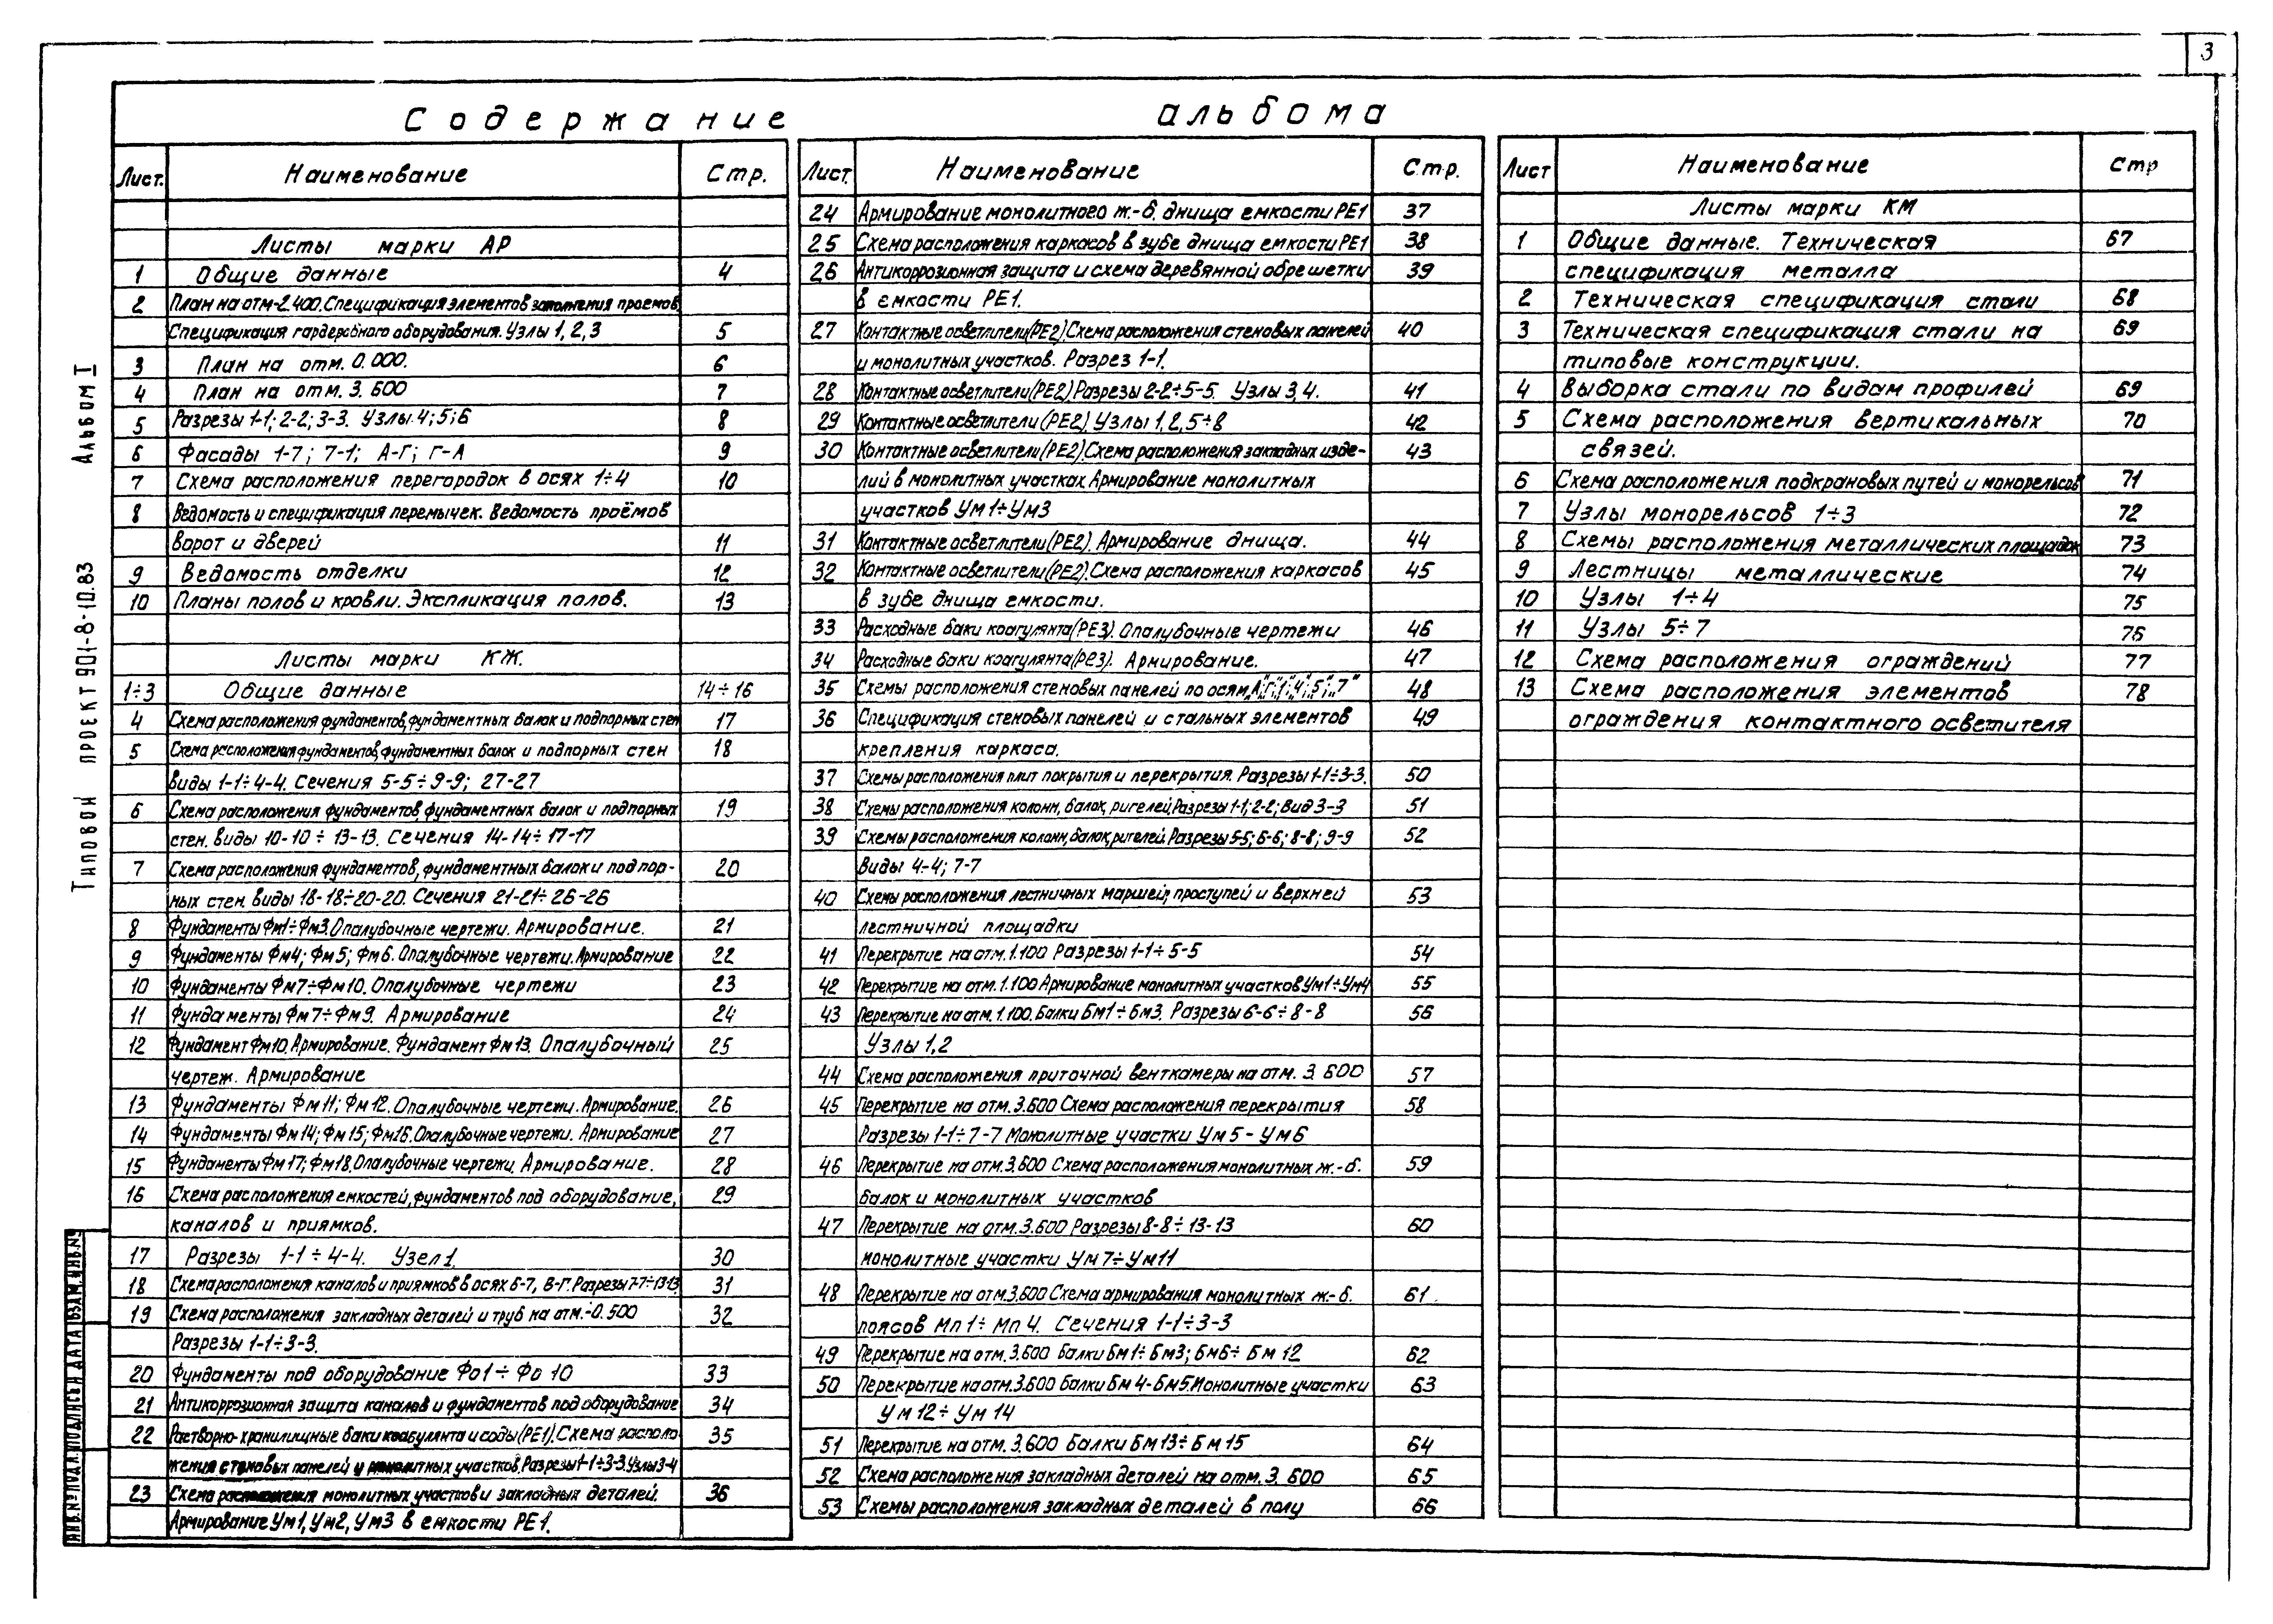 3
Содержание альбома
Лист. Наименование Стр.
Листы марки АР
1 Общие данные 4
2 План на отм-2.400. Спецификация элементов заполнения проемов.
Спецификация гардеробного оборудования. Узлы 1, 2, 3 5
3 План на отм. 0.000. 6
4 План на отм. 3.600 7
5 Разрезы 1-1; 2-2; 3-3. Узлы 4; 5; 6 8
6 Фасады 1-7; 7-1; А-Г; Г-А 9
7 Схема расположения перегородок в осях 1÷4 10
8 Ведомость и спецификация перемычек. Ведомость проёмов
ворот и дверей 11
9 Ведомость отделки 12
10 Планы полов и кровли. Экспликация полов. 13
Листы марки КЖ.
1÷3 Общие данные 14÷16
4 Схема расположения фундаментов, фундаментных балок и подпорных стен 17
5 Схема расположения фундаментов, фундаментных балок и подпорных стен 18
виды 1-1÷4-4. Сечения 5-5÷9-9; 27-27
6 Схема расположения фундаментов, фундаментных балок и подпорных 19
стен. виды 10-10÷13-13. Сечения 14-14÷17-17
7 Схема расположения фундаментов, фундаментных балок и подпор- 20
ных стен. виды 18-18÷20-20. Сечения 21-21÷26-26
8 Фундаменты Фм1÷Фм3. Опалубочные чертежи. Армирование. 21
9 Фундаменты Фм4; Фм5; Фм6. Опалубочные чертежи. Армирование 22
10 Фундаменты Фм7÷Фм10. Опалубочные чертежи 23
11 Фундаменты Фм7÷Фм9. Армирование 24
12 Фундамент Фм10. Армирование. Фундамент Фм13. Опалубочный 25
чертеж. Армирование
13 Фундаменты Фм11; Фм12. Опалубочные чертежи. Армирование. 26
14 Фундаменты Фм14; Фм15; Фм16. Опалубочные чертежи. Армирование 27
15 Фундаменты Фм17; Фм18. Опалубочные чертежи. Армирование. 28
16 Схема расположения емкостей, фундаментов под оборудование, 29
каналов и приямков.
17 Разрезы 1-1÷4-4. Узел 1. 30
18 Схема расположения каналов и приямков в осях 6-7, В-Г. Разрезы 7-7÷13-13 31
19 Схема расположения закладных деталей и труб на отм.-0.500 32
Разрезы 1-1÷3-3.
20 Фундаменты под оборудование Фо1÷Фо10 33
21 Антикоррозионная защита каналов и фундаментов под оборудование 34
22 Растворно-хранилищные баки коагулянта и соды (РЕ1). Схема располо 35
жения стеновых панелей и монолитных участков. Разрезы 1-1÷3-3. Узлы 3-4
23 Схема расположения монолитных участков и закладных деталей. 36
Армирование Ум1, Ум2, Ум3 в емкости РЕ1.
Лист. Наименование Стр.
24 Армирование монолитного ж.-б. днища емкости РЕ1 37
25 Схема расположения каркасов в зубе днища емкости РЕ1 38
26 Антикоррозионная защита и схема деревянной обрешетки 39
в емкости РЕ1.
27 Контактные осветлители (РЕ2) Схема расположения стеновых панелей 40
и монолитных участков. Разрез 1-1.
28 Контактные осветлители (РЕ2) Разрезы 2-2÷5-5. Узлы 3, 4. 41
29 Контактные осветлители (РЕ2). Узлы 1, 2, 5÷8 42
30 Контактные осветлители (РЕ2). Схема расположения закладных изде- 43
лий в монолитных участках. Армирование монолитных
участков Ум1÷Ум3
31 Контактные осветлители (РЕ2). Армирование днища. 44
32 Контактные осветлители (РЕ2). Схема расположения каркасов 45
в зубе днища емкости.
33 Расходные баки коагулянта (РЕ3). Опалубочные чертежи 46
34 Расходные баки коагулянта (РЕ3). Армирование. 47
35 Схемы расположения стеновых панелей по осям „А", „Г", „1", „4", „5", „7" 48
36 Спецификация стеновых панелей и стальных элементов 49
крепления каркаса.
37 Схемы расположения плит покрытия и перекрытия. Разрезы 1-1÷3-3. 50
38 Схемы расположения колонн, балок, ригелей. Разрезы 1-1; 2-2; Вид 3-3 51
39 Схемы расположения колонн, балок, ригелей. Разрезы 5-5; 6-6; 8-8; 9-9 52
Виды 4-4; 7-7
40 Схемы расположения лестничных маршей, проступей и верхней 53
лестничной площадки
41 Перекрытие на отм. 1.100 Разрезы 1-1÷5-5 54
42 Перекрытие на отм. 1.100 Армирование монолитных участков Ум1÷Ум4 55
43 Перекрытие на отм. 1.100. Балки Бм1÷Бм3. Разрезы 6-6÷8-8 56
Узлы 1, 2
44 Схема расположения приточной венткамеры на отм. 3.600 57
45 Перекрытие на отм. 3.600 Схема расположения перекрытия 58
Разрезы 1-1÷7-7 Монолитные участки Ум5-Ум6
46 Перекрытие на отм. 3.600 Схема расположения монолитных ж.-б. 59
балок и монолитных участков
47 Перекрытие на отм. 3.600 Разрезы 8-8÷13-13 60
монолитные участки Ум7÷Ум11
48 Перекрытие на отм. 3.600 Схема армирования монолитных ж.-б. 61
поясов Мп1÷Мп4. Сечения 1-1÷3-3
49 Перекрытие на отм. 3.600 Балки Бм1÷Бм3; Бм6÷Бм12 62
50 Перекрытие на отм. 3.600 Балки Бм4-Бм5. Монолитные участки 63
Ум12÷Ум14
51 Перекрытие на отм. 3.600 Балки Бм13÷Бм15 64
52 Схема расположения закладных деталей на отм. 3.600 65
53 Схемы расположения закладных деталей в полу 66
Лист Наименование Стр
Листы марки КМ
1 Общие данные. Техническая 67
спецификация металла
2 Техническая спецификация стали 68
3 Техническая спецификация стали на 69
типовые конструкции.
4 Выборка стали по видам профилей 69
5 Схема расположения вертикальных 70
связей.
6 Схема расположения подкрановых путей и монорельсов 71
7 Узлы монорельсов 1÷3 72
8 Схемы расположения металлических площадок 73
9 Лестницы металлические 74
10 Узлы 1÷4 75
11 Узлы 5÷7 76
12 Схема расположения ограждений 77
13 Схема расположения элементов 78
ограждения контактного осветителя
Типовой проект 901-8-10.83 Альбом I
ИНВ.№ ПОДЛ. ПОДПИСЬ И ДАТА ВЗАМ.ИНВ.№